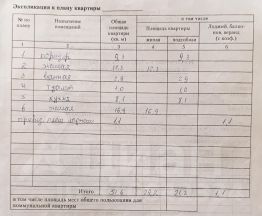 Экспликация к плану квартиры
№ по плану
Назначение помещений
Общая площадь (кв. м)
в том числе
Площадь квартиры
жилая
подсобная
Лоджий, балконов, веранд (с коэф.)
1 2 3 4 5 6
1 коридор 9,3 9,3
2 жилая
3 ванная 2,9 2,9
4 туалет 1,0 1,0
5 кухня 8,1 8,1
6 жилая 16,9 16,9
лоджии 1,1 1,1
Итого 1,1
в том числе площадь мест общего пользования для
коммунальной квартиры